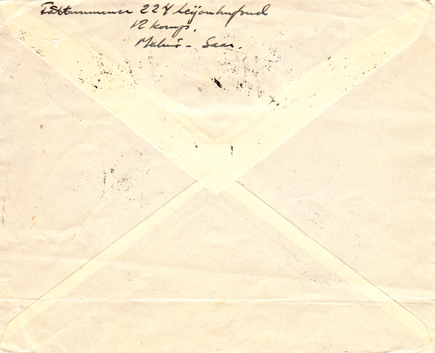 Fältnummer 224 Leijonhufvud
12 komp.
Malmö - Saar.